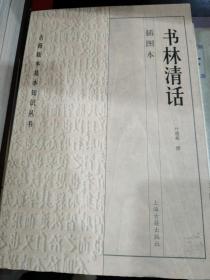 书林清话
插图本
古籍版本基本知识丛书
叶德辉 撰
上海古籍出版社